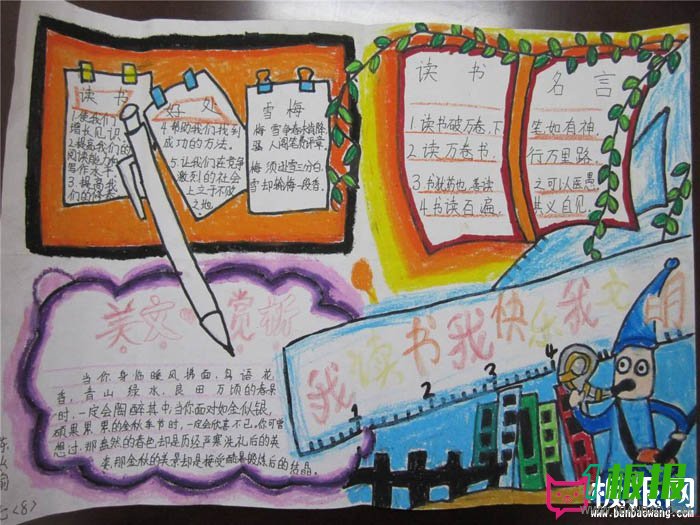 读书
1.使我们
增长见识
2.提高我们的
阅读能力和
写作水平.
3.提高我
们的
好处
4.帮助我们找到
成功的方法.
5.让我们在竞争
激烈的社会
上立于不败
之地.
雪梅
梅雪争春未肯降
骚人阁笔费评章.
梅须逊雪三分白
雪却输梅一段香.
读书
名言
1.读书破万卷,下
笔如有神.
2.读万卷书,
行万里路.
3.书犹药也,善读
之可以医愚.
4.书读百遍,
其义自见.
美文赏析
当你身临暖风拂面,鸟语花
香,青山绿水,良田万顷的春景
时,一定会陶醉其中,当你面对如金似银,
硕果累累的金秋季节时,一定会欣喜不已,你可曾
想过,那盎然的春色却是历经严寒洗礼后的英
姿,那金秋的美景却是接受酷暑锻炼后的结晶.
我读书我快乐我文明
1 2 3 4
五<8>
板报网
www.banbaowang.com